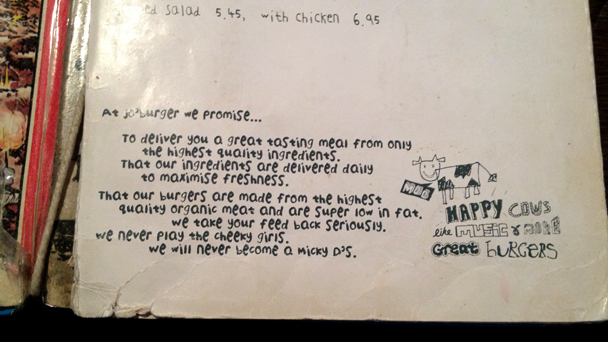 ed salad 5.45, with chicken 6.95
At jo'burger we promise...
To deliver you a great tasting meal from only
the highest quality ingredients.
That our ingredients are delivered daily
to maximise freshness.
That our burgers are made from the highest
quality organic meat and are super low in fat.
we take your feed back seriously.
we never play the cheeky girls.
we will never become a Micky D's.
MOO
HAPPY COWS
like MUSIC & MAKE
Great BURGERS